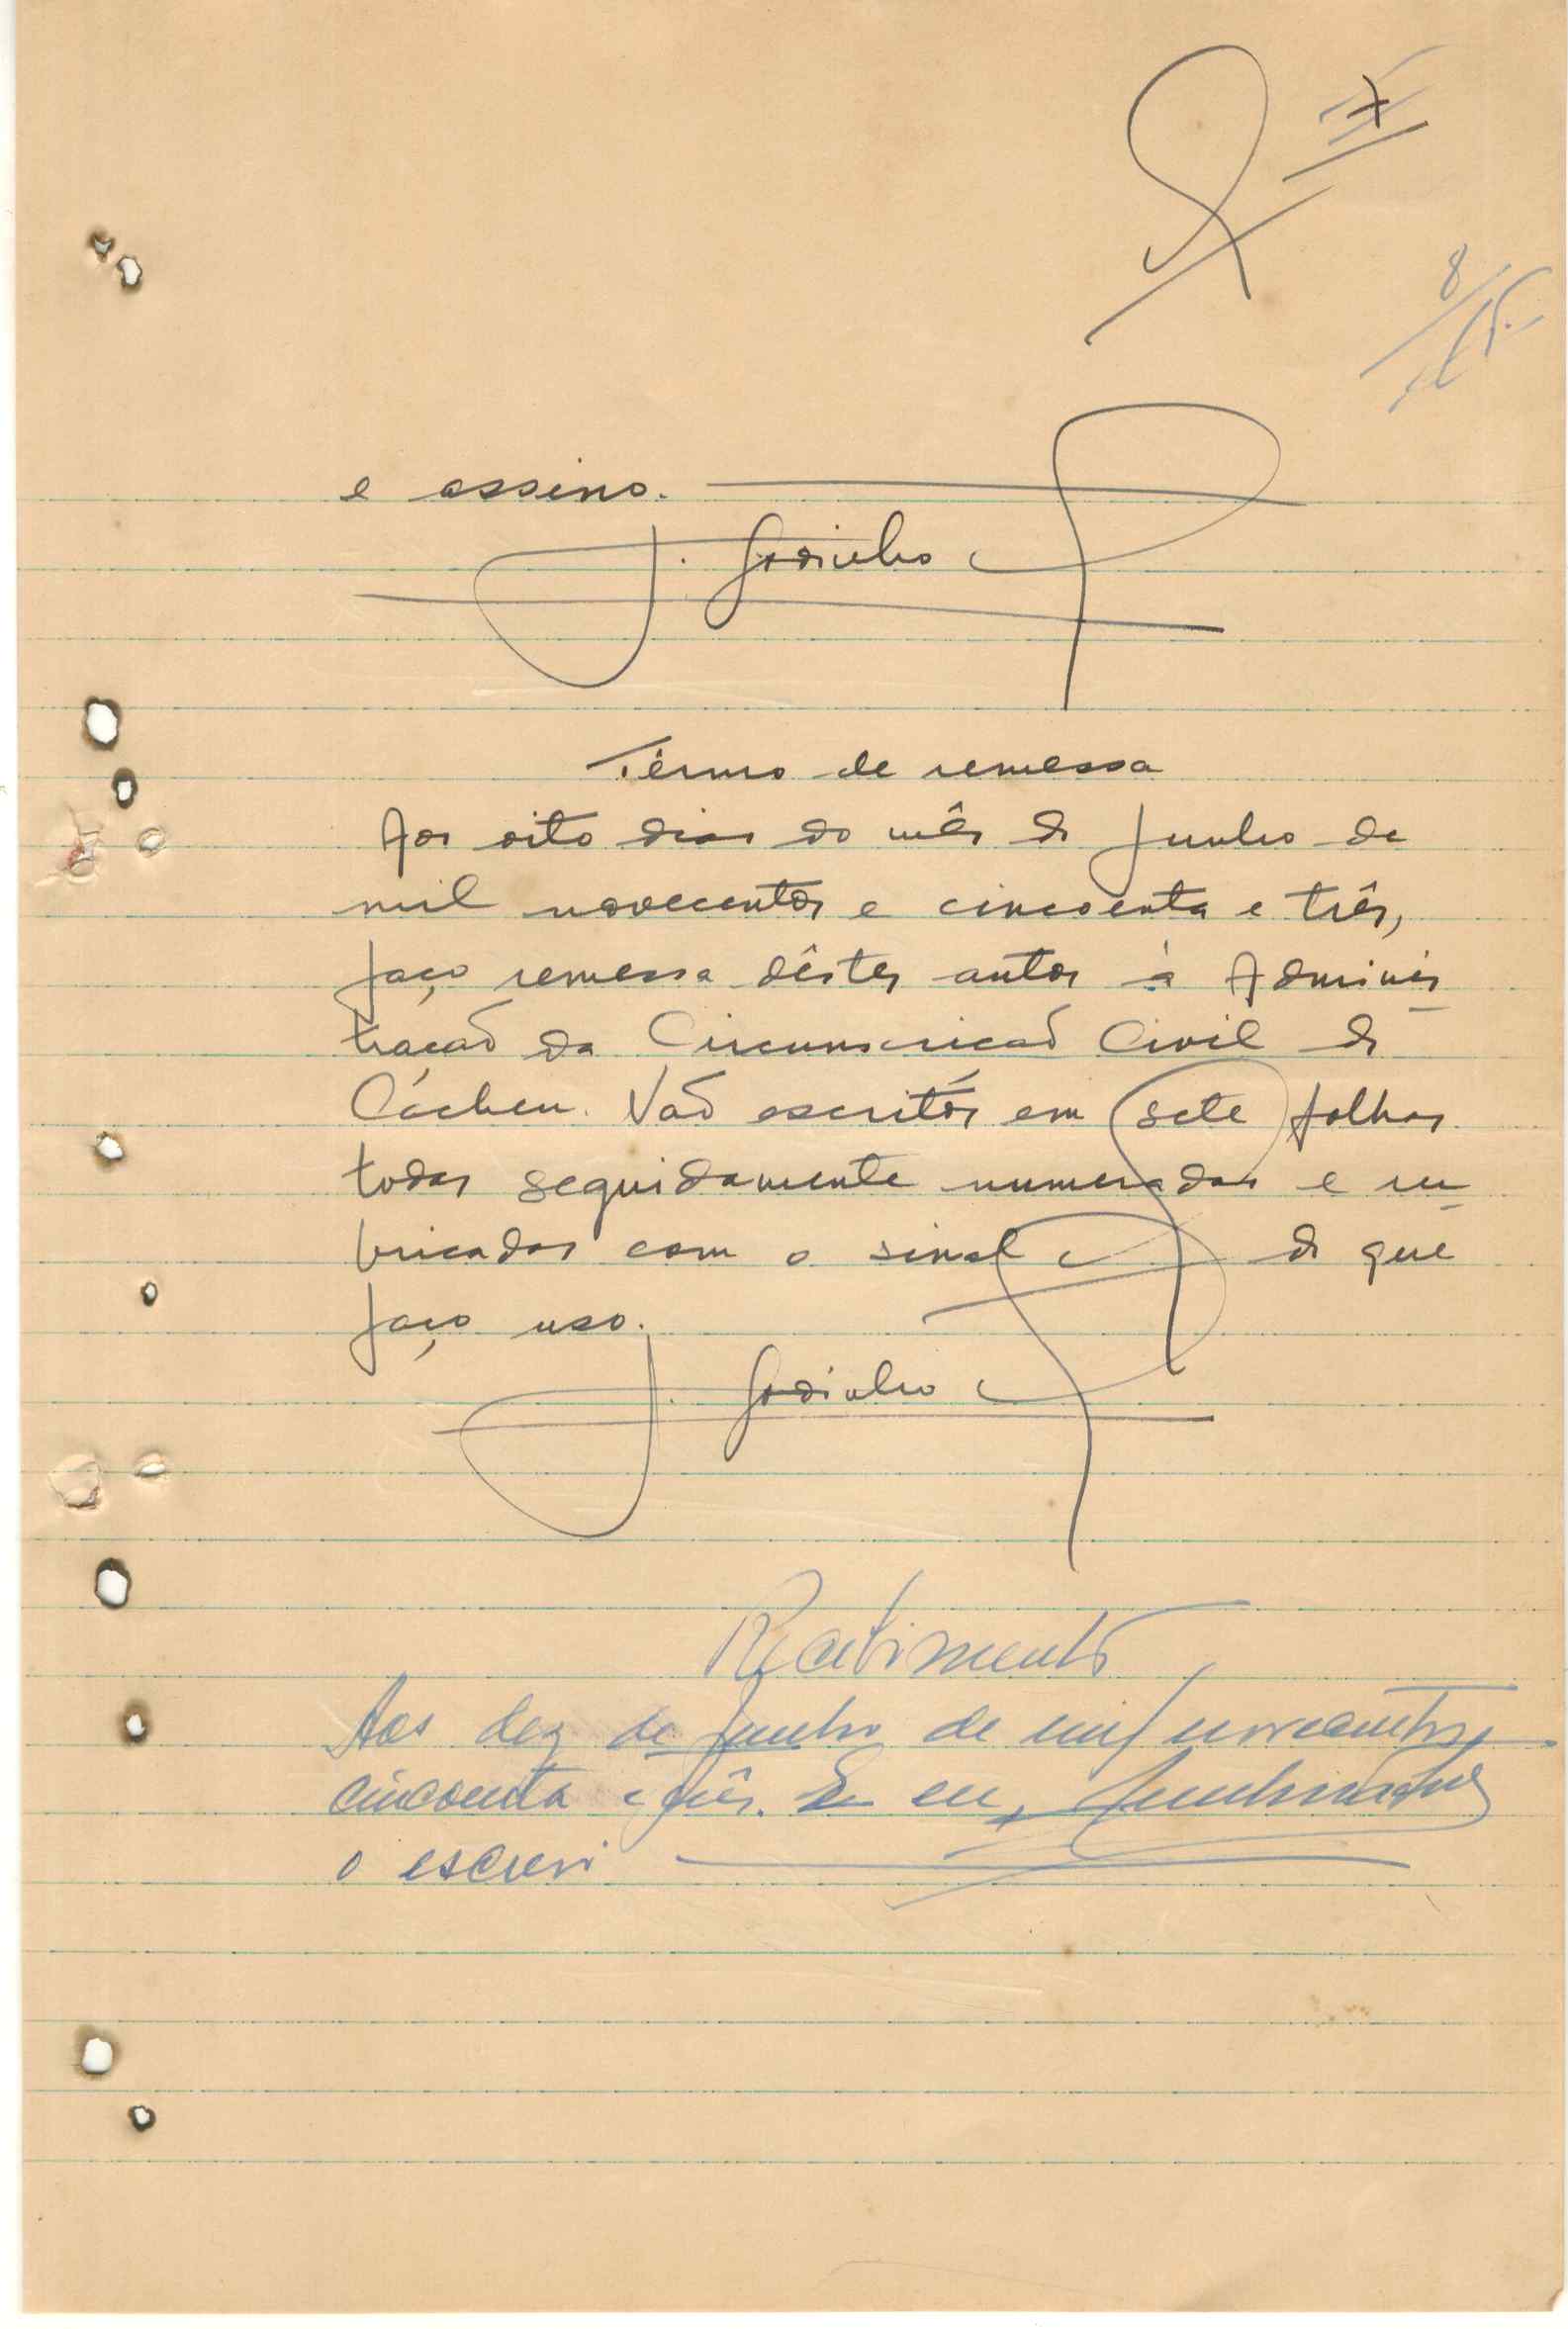 8
e assino.
J. Godinho
Têrmo de remessa
Aos oito dias do mês de Junho de
mil novecentos e cincoenta e três,
faço remessa dêstes autos à Adminis
tração da Circunscricão Civil de
Cácheu. Vão escritos em sete folhas
todas seguidamente numeradas e ru
bricadas com o sinal de que
faço uso.
J. Godinho
Recebimento
Aos dez de Junho de mil novecentos
cincoenta e três. E eu,
o escrevi